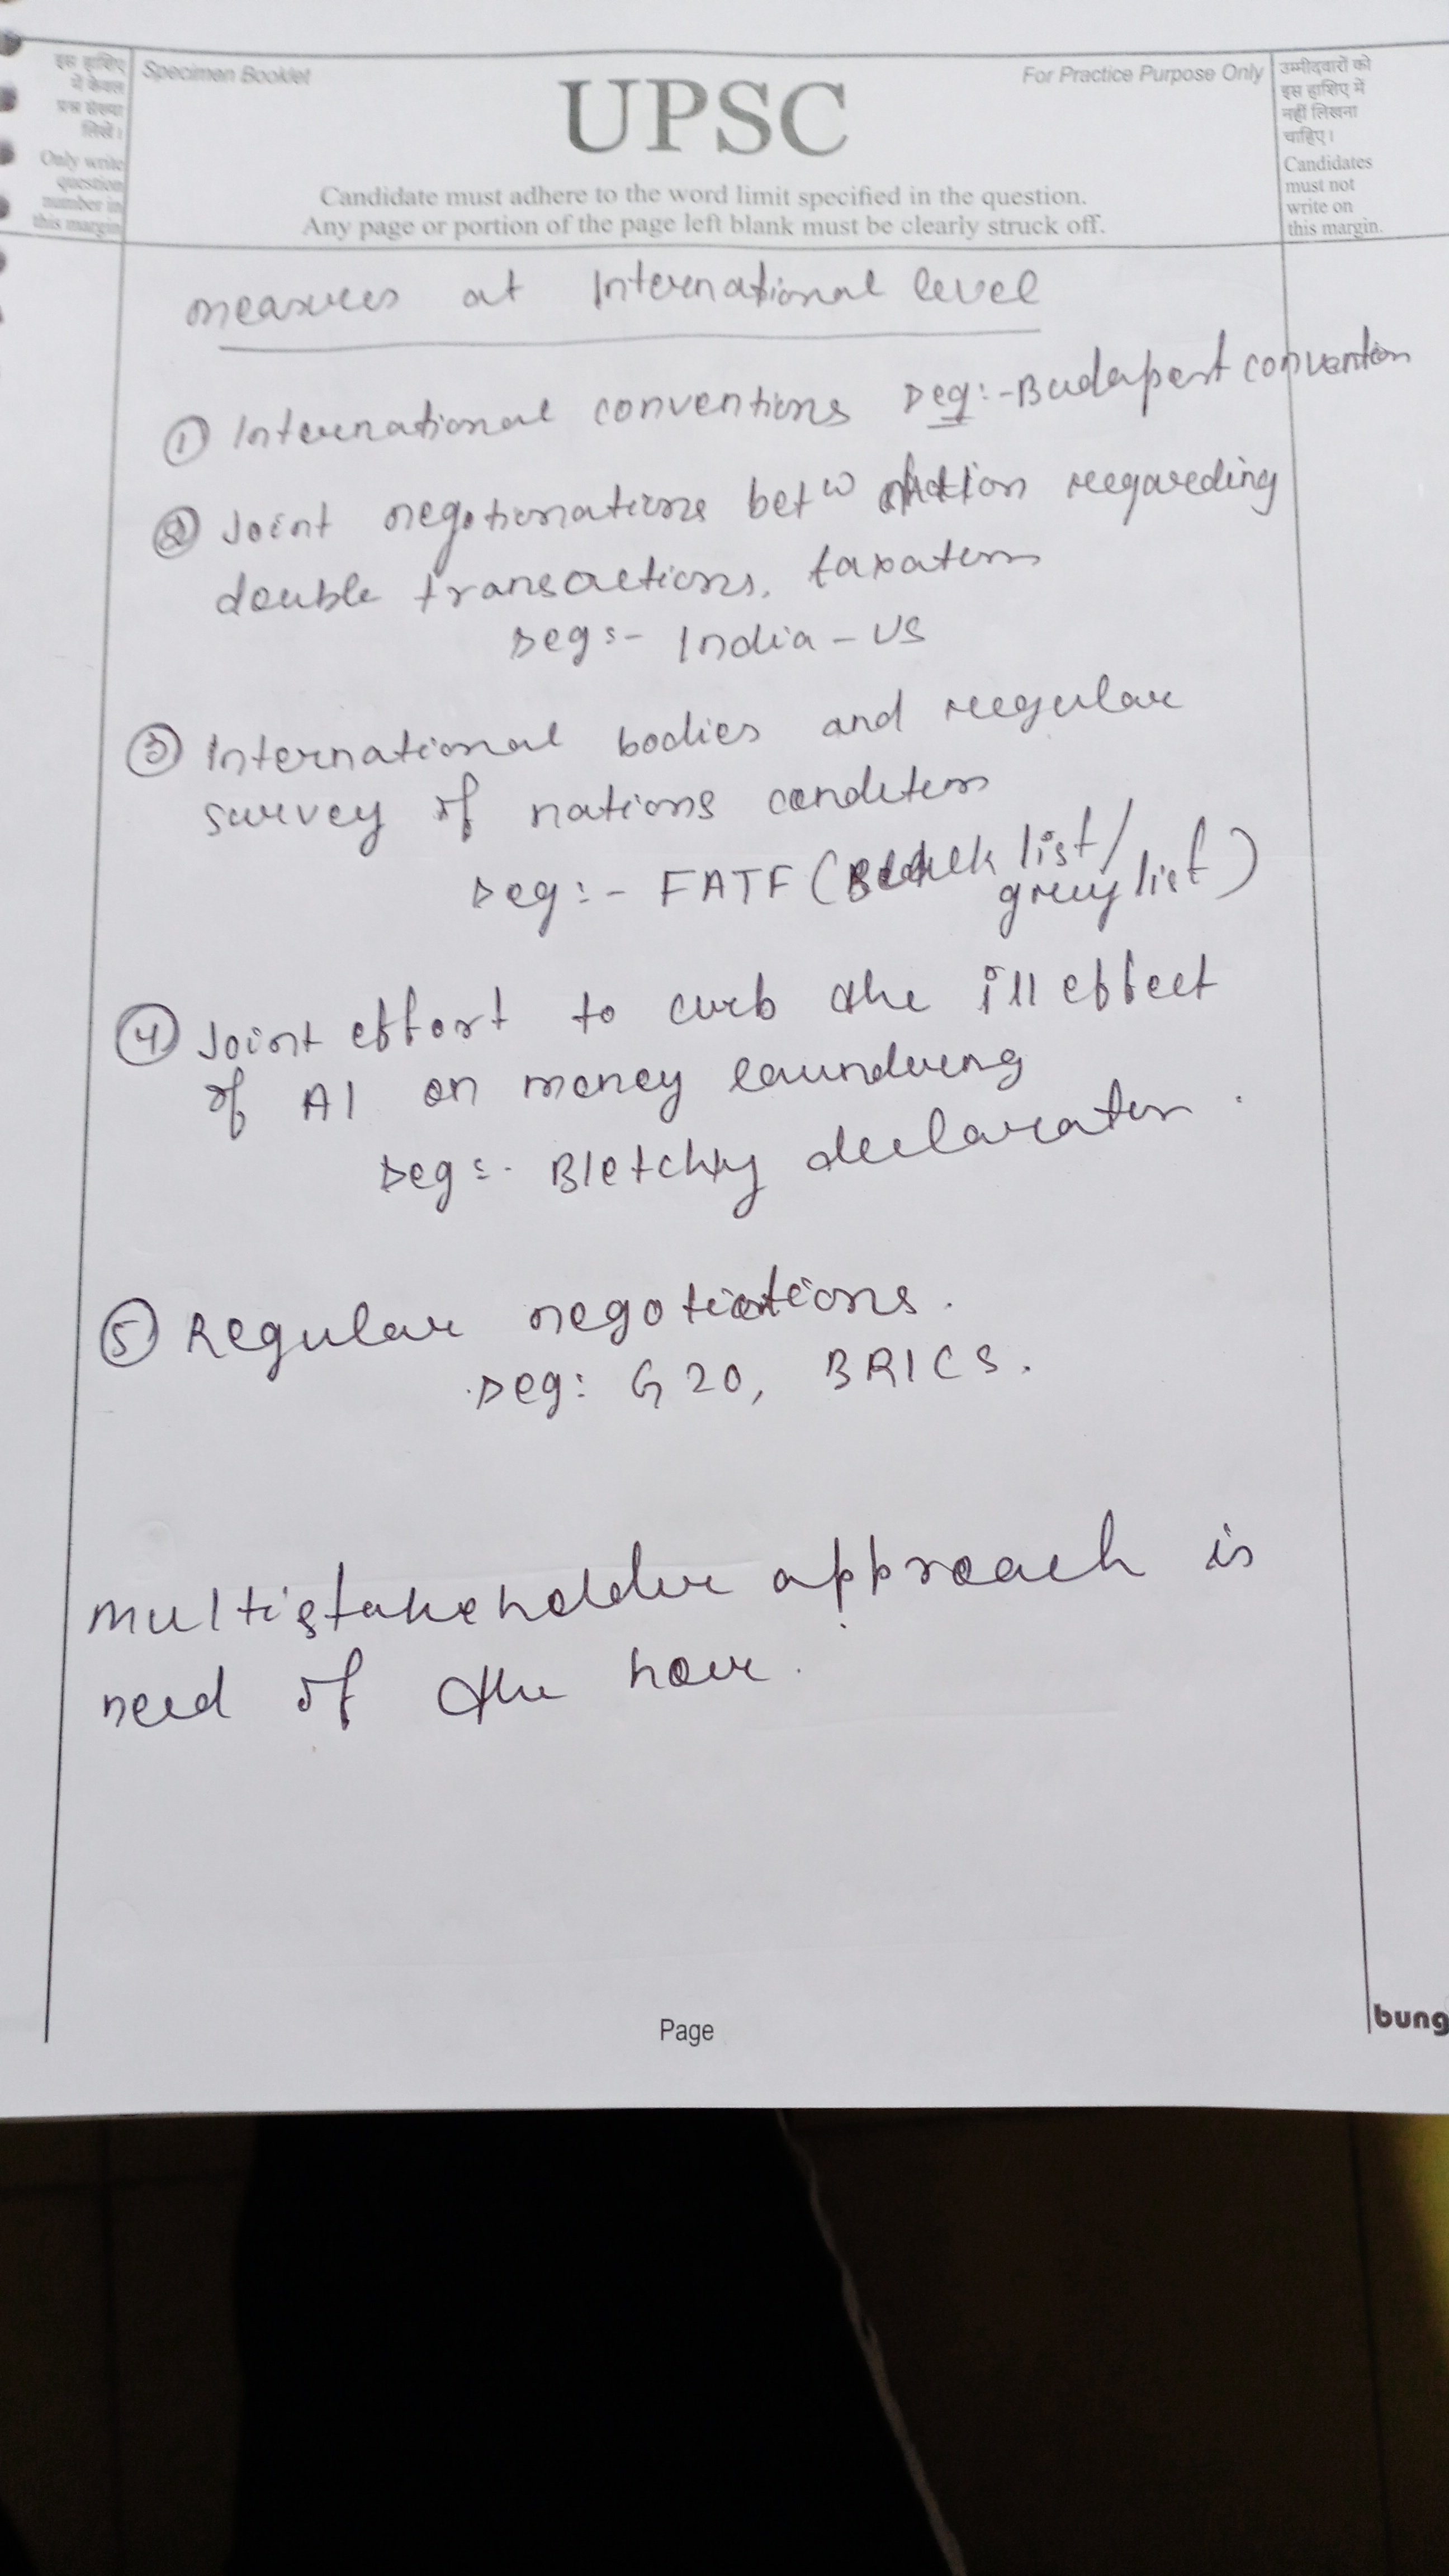 इस हाशिए
में केवल
प्रश्न संख्या
लिखें।
Only write
question
number in
this margin
Specimen Booklet
UPSC
For Practice Purpose Only
Candidate must adhere to the word limit specified in the question.
Any page or portion of the page left blank must be clearly struck off.
उम्मीदवारों को
इस हाशिए में
नहीं लिखना
चाहिए।
Candidates
must not
write on
this margin.
measures at International level
① International conventions eg:- Budapest convention
② Joint negotionations betw nation regarding
double transactions, taxation
eg:- India - US
③ International bodies and regular
survey of nations condition
eg:- FATF (Black list/
grey list)
④ Joint effort to curb the ill effect
of AI on money laundering
eg:- Bletchly declaration.
⑤ Regular negotiations.
eg: G20, BRICS.
multistakeholder approach is
need of the hour.
Page
bung